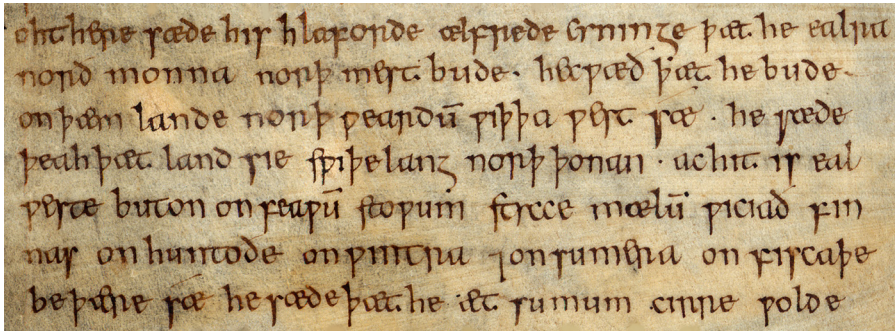 ohthere sæde his hlaforde ælfrede cyninge þæt he ealra
norð monna norþ mest bude · he cƿæð þæt he bude ·
on þæm lande norþ ƿeardū ƿiþ þa ƿest sæ · he sæde
þeah þæt land sie sƿiþe lang norþ þonan · ac hit is eal
ƿeste buton on feaƿū stoƿum stycce mælū ƿiciað fin
nas on huntoðe on ƿintra ⁊ on sumera on fiscaþe
be þære sæ he sæde þæt he æt sumum cirre ƿolde